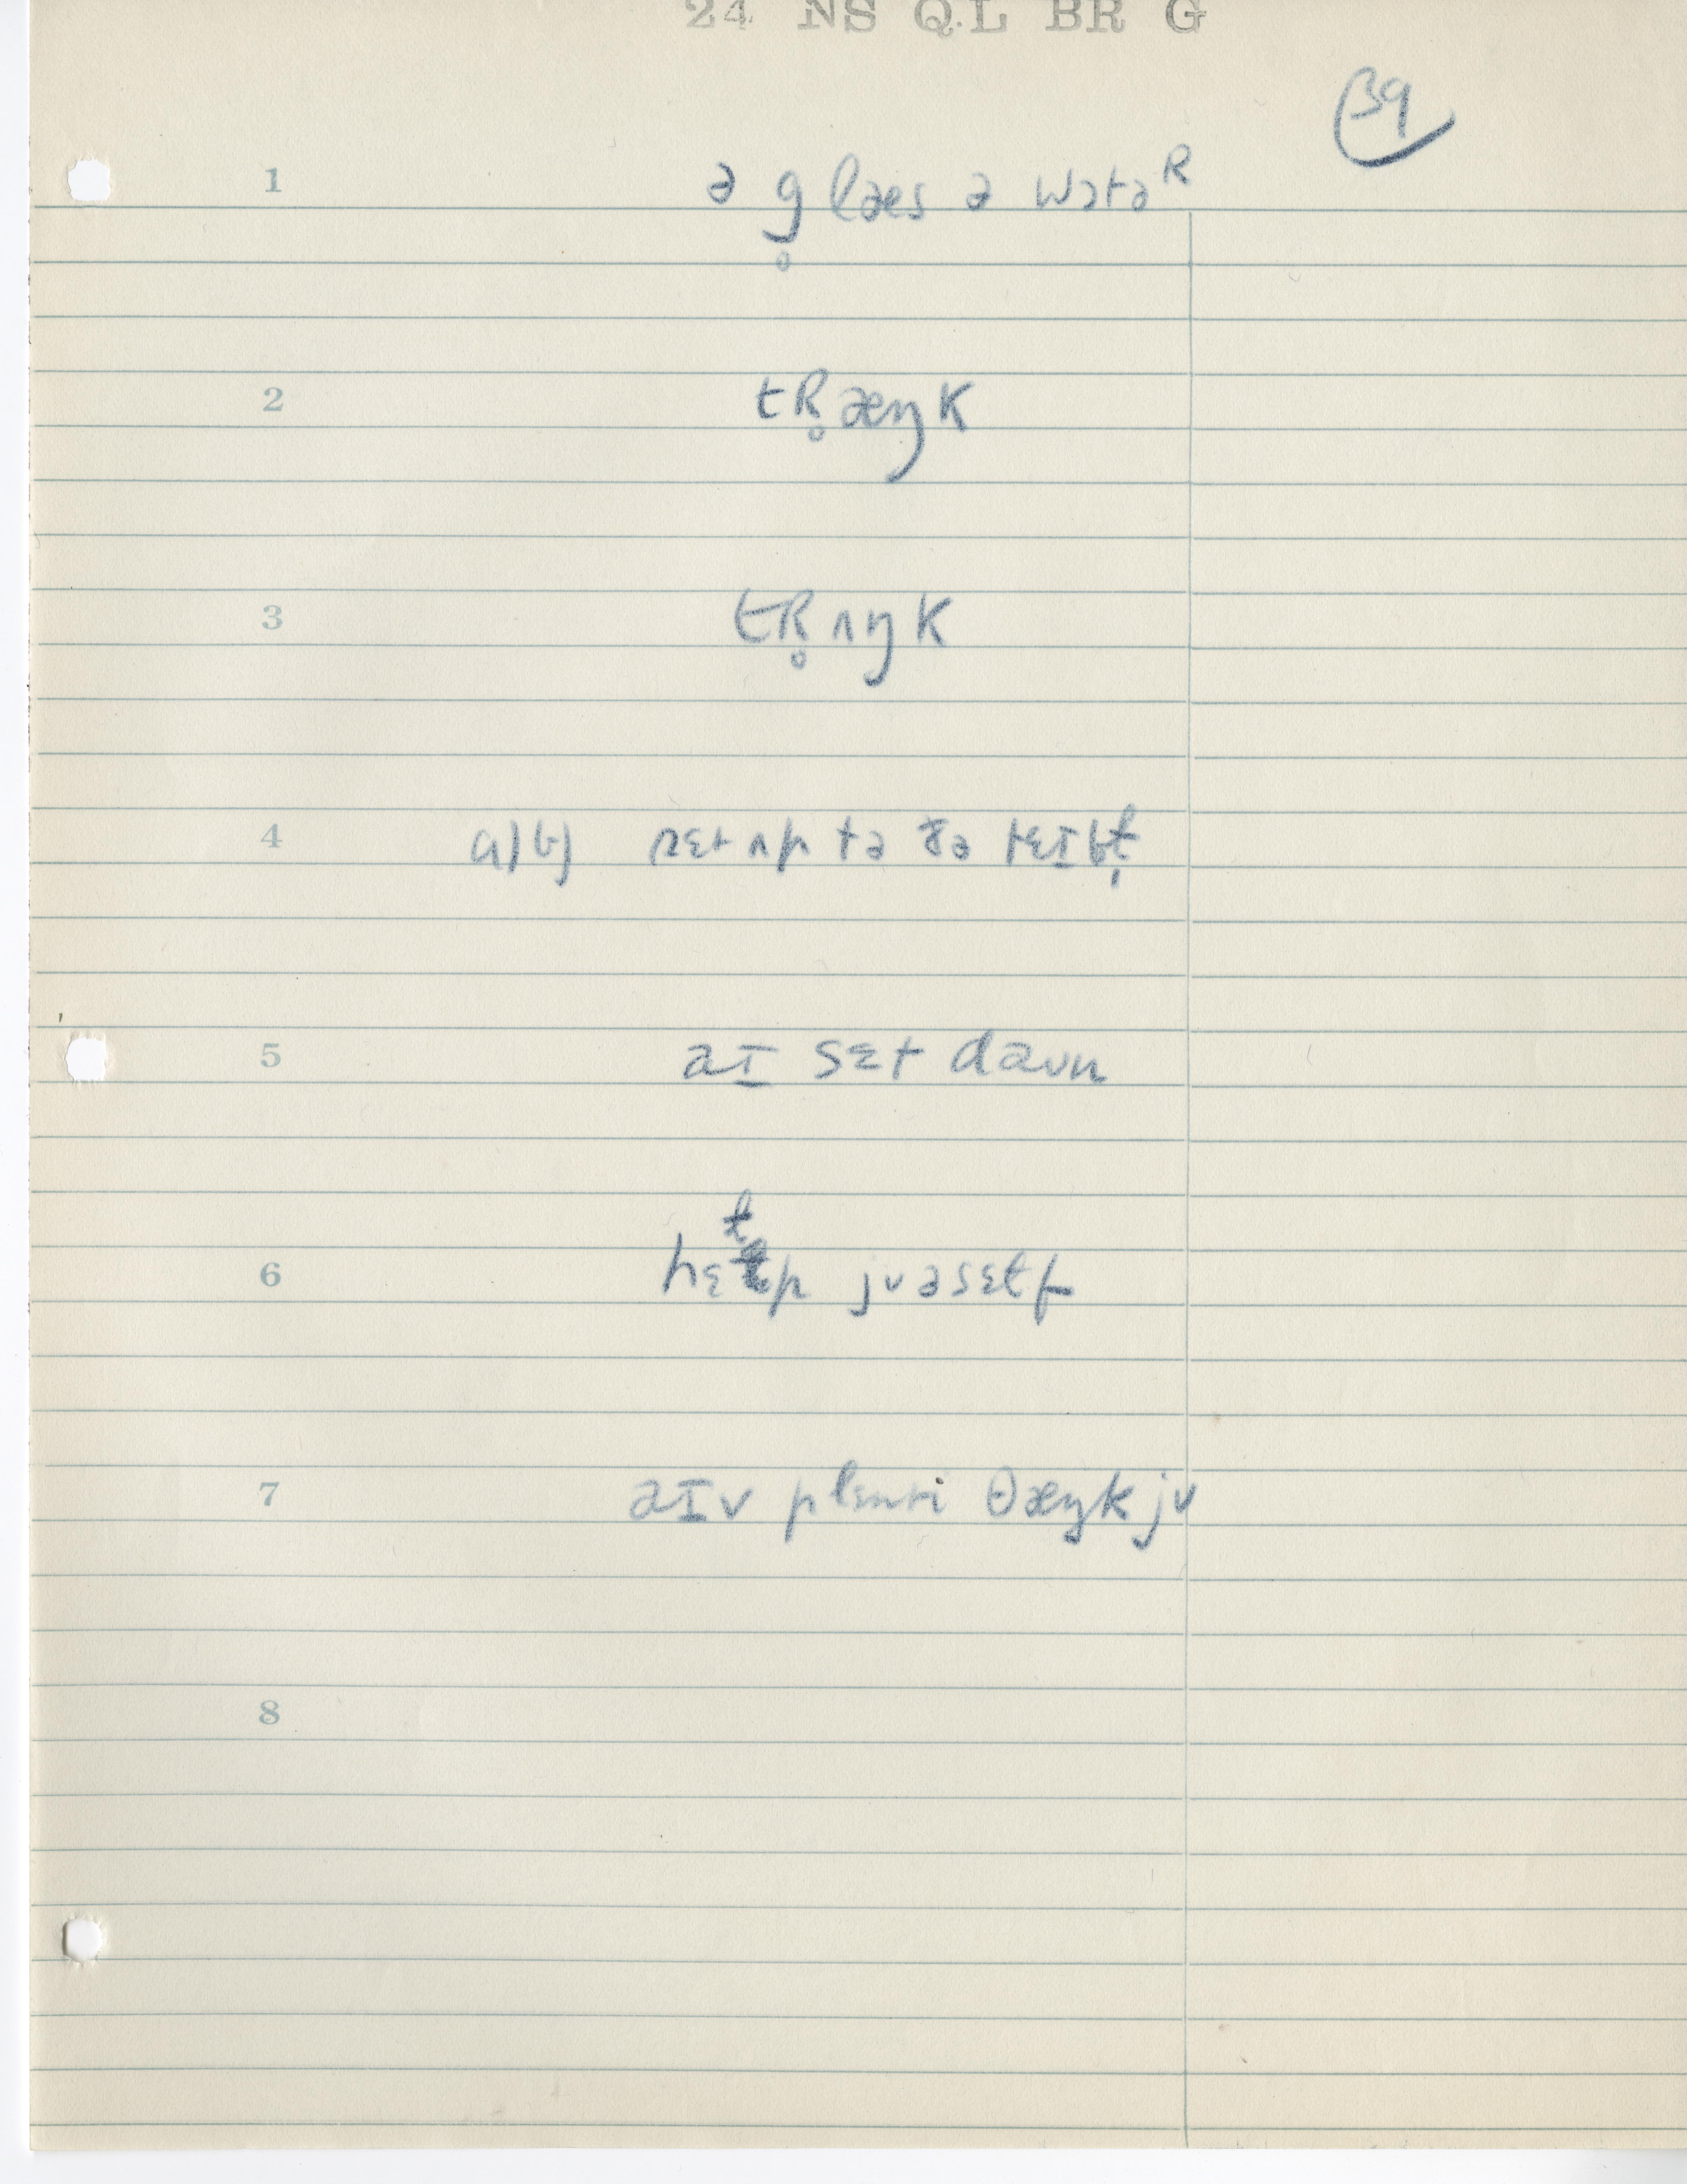 24 NS QL BR G
39
1 ə g̥ læs ə wɔtəᴿ
2 tR̥æŋk
3 tR̥ʌŋk
4 a)b) sɛt ʌp tə ðə tɛɪbɫ̩
5 aɪ sɛt daʊn
6 hɛɫp jʊəsɛɫf
7 aɪv plɛnti θæŋk jʊ
8